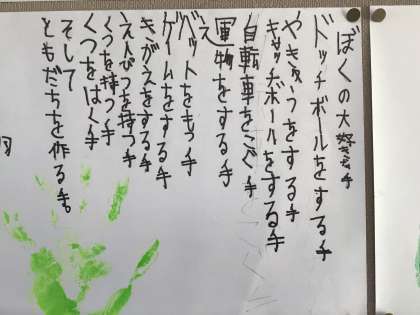 ぼくの大好きな手
ドッチボールをする手
やきゅうをする手
キャッチボールをする手
自転車をこぐ手
運動をする手
バットをもつ手
ゲームをする手
きがえをする手
えんぴつを持つ手
くつを持つ手
くつをはく手
そして
ともだちを作る手。